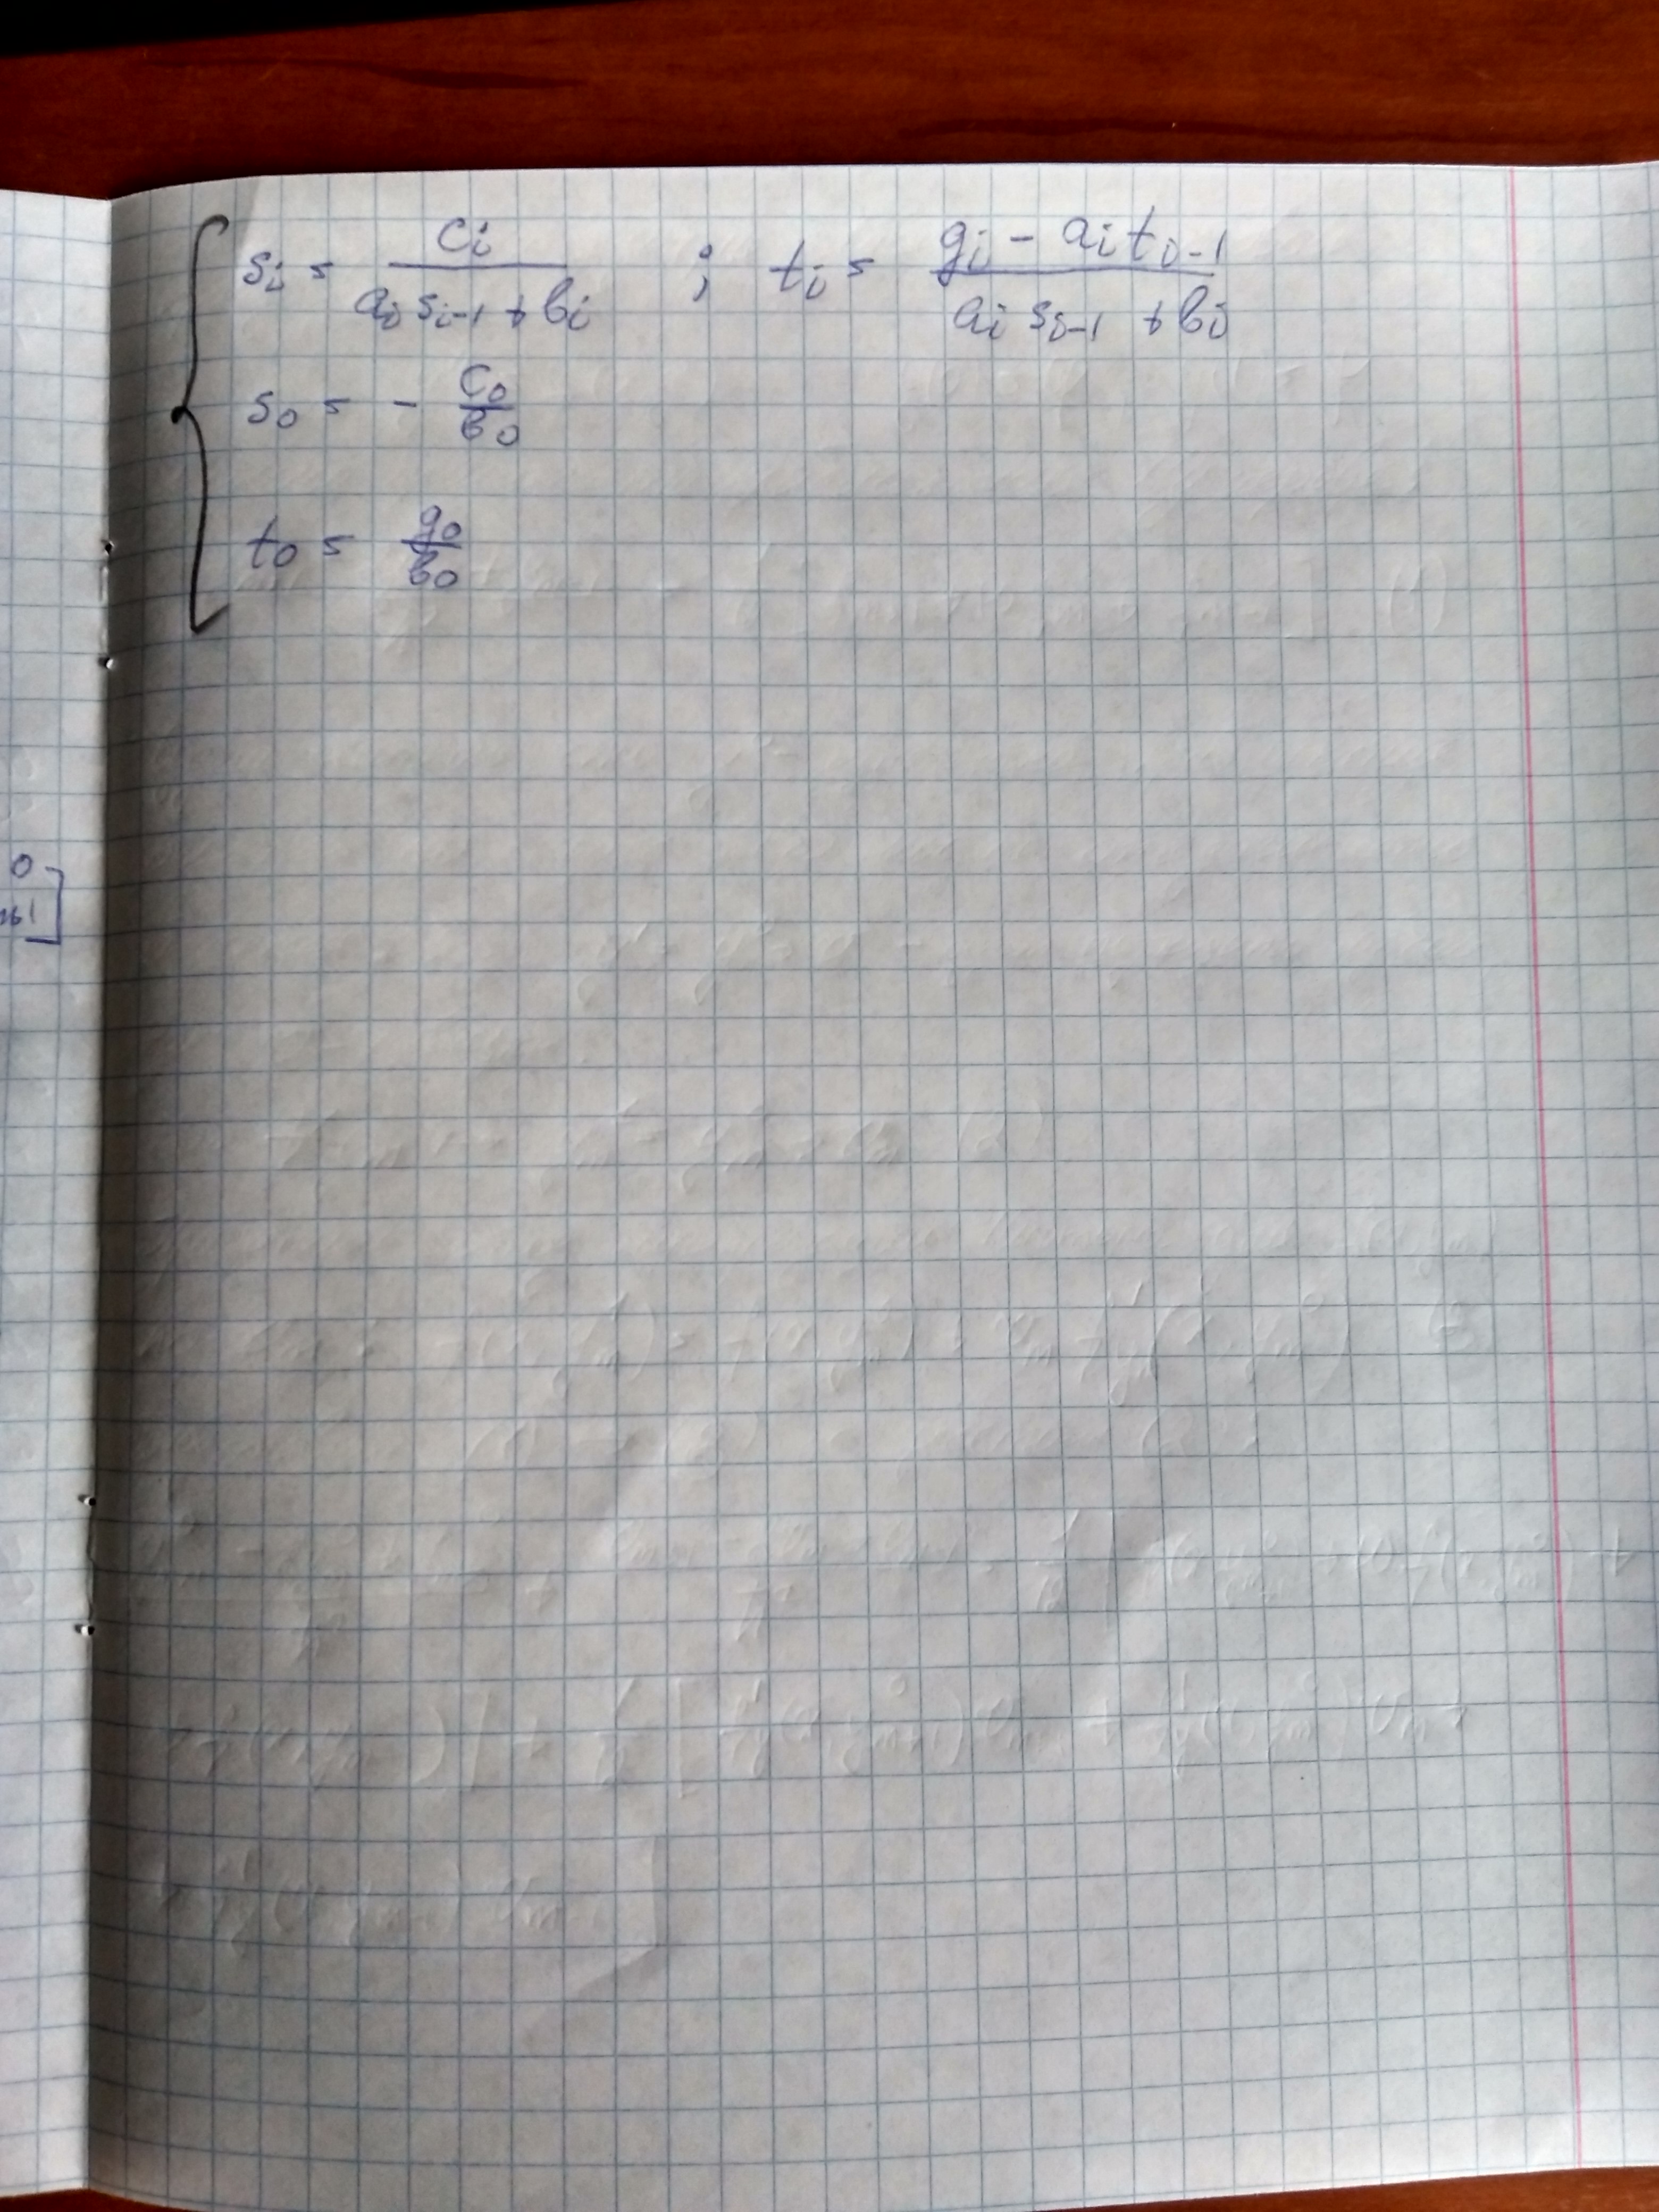 s_i = \frac{c_i}{a_i s_{i-1} + b_i} ; t_i = \frac{g_i - a_i t_{i-1}}{a_i s_{i-1} + b_i}
s_0 = - \frac{c_0}{b_0}
t_0 = \frac{g_0}{b_0}
0